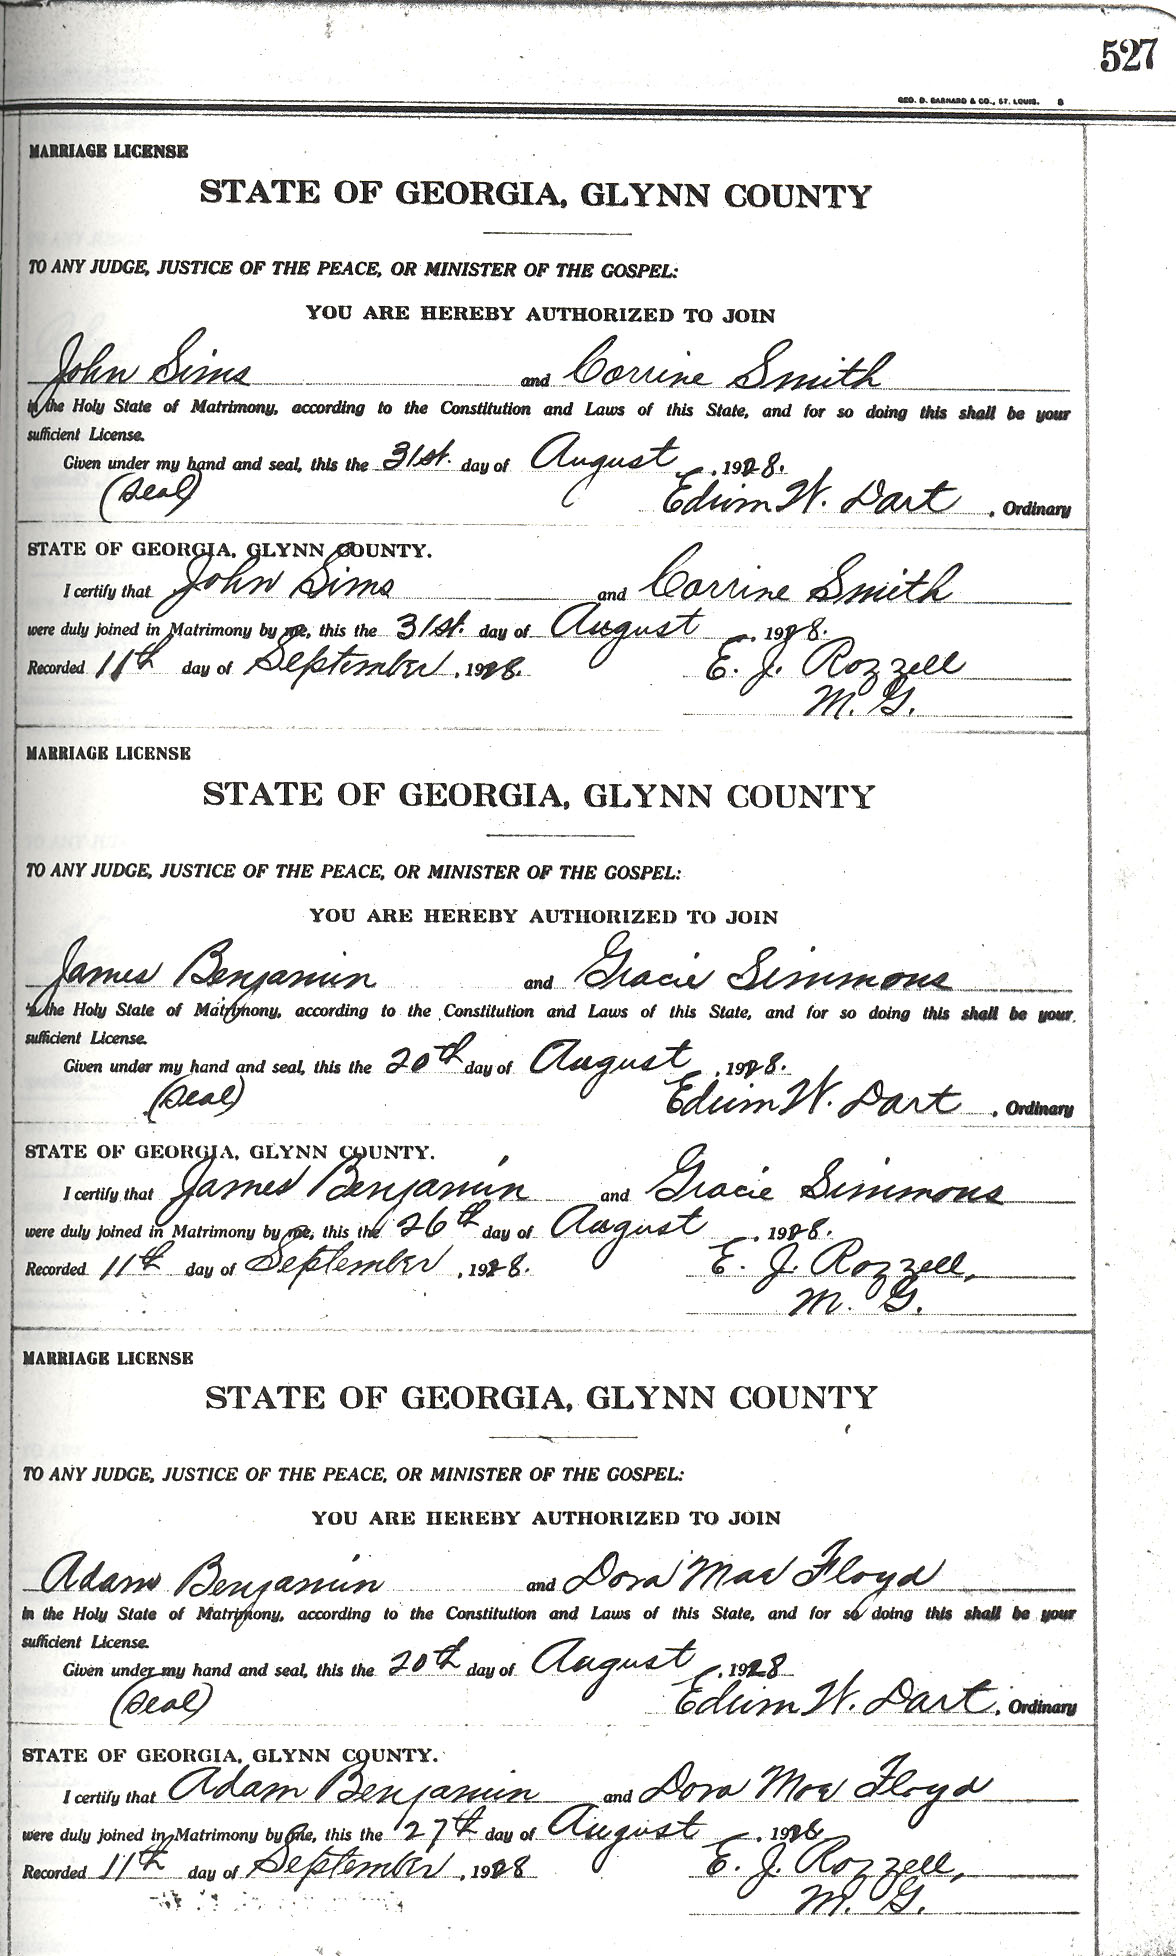 527
GEO. D. BARNARD & CO., ST. LOUIS. 8
MARRIAGE LICENSE
STATE OF GEORGIA, GLYNN COUNTY
TO ANY JUDGE, JUSTICE OF THE PEACE, OR MINISTER OF THE GOSPEL:
YOU ARE HEREBY AUTHORIZED TO JOIN
John Sims and Corrine Smith
in the Holy State of Matrimony, according to the Constitution and Laws of this State, and for so doing this shall be your
sufficient License.
Given under my hand and seal, this the 31st. day of August, 1928.
(Seal) Edwin W. Dart, Ordinary
STATE OF GEORGIA, GLYNN COUNTY.
I certify that John Sims and Corrine Smith
were duly joined in Matrimony by me, this the 31st. day of August, 1928.
Recorded 11th day of September, 1928. E. J. Rozzell
M. G.
MARRIAGE LICENSE
STATE OF GEORGIA, GLYNN COUNTY
TO ANY JUDGE, JUSTICE OF THE PEACE, OR MINISTER OF THE GOSPEL:
YOU ARE HEREBY AUTHORIZED TO JOIN
James Benjamin and Gracie Simmons
in the Holy State of Matrimony, according to the Constitution and Laws of this State, and for so doing this shall be your
sufficient License.
Given under my hand and seal, this the 20th day of August, 1928.
(Seal) Edwin W. Dart, Ordinary
STATE OF GEORGIA, GLYNN COUNTY.
I certify that James Benjamin and Gracie Simmons
were duly joined in Matrimony by me, this the 26th day of August, 1928.
Recorded 11th day of September, 1928. E. J. Rozzell,
M. G.
MARRIAGE LICENSE
STATE OF GEORGIA, GLYNN COUNTY
TO ANY JUDGE, JUSTICE OF THE PEACE, OR MINISTER OF THE GOSPEL:
YOU ARE HEREBY AUTHORIZED TO JOIN
Adam Benjamin and Dora Mae Floyd
in the Holy State of Matrimony, according to the Constitution and Laws of this State, and for so doing this shall be your
sufficient License.
Given under my hand and seal, this the 20th day of August, 1928
(Seal) Edwin W. Dart, Ordinary
STATE OF GEORGIA, GLYNN COUNTY.
I certify that Adam Benjamin and Dora Mae Floyd
were duly joined in Matrimony by me, this the 27th day of August, 1928
Recorded 11th day of September, 1928 E. J. Rozzell,
M. G.